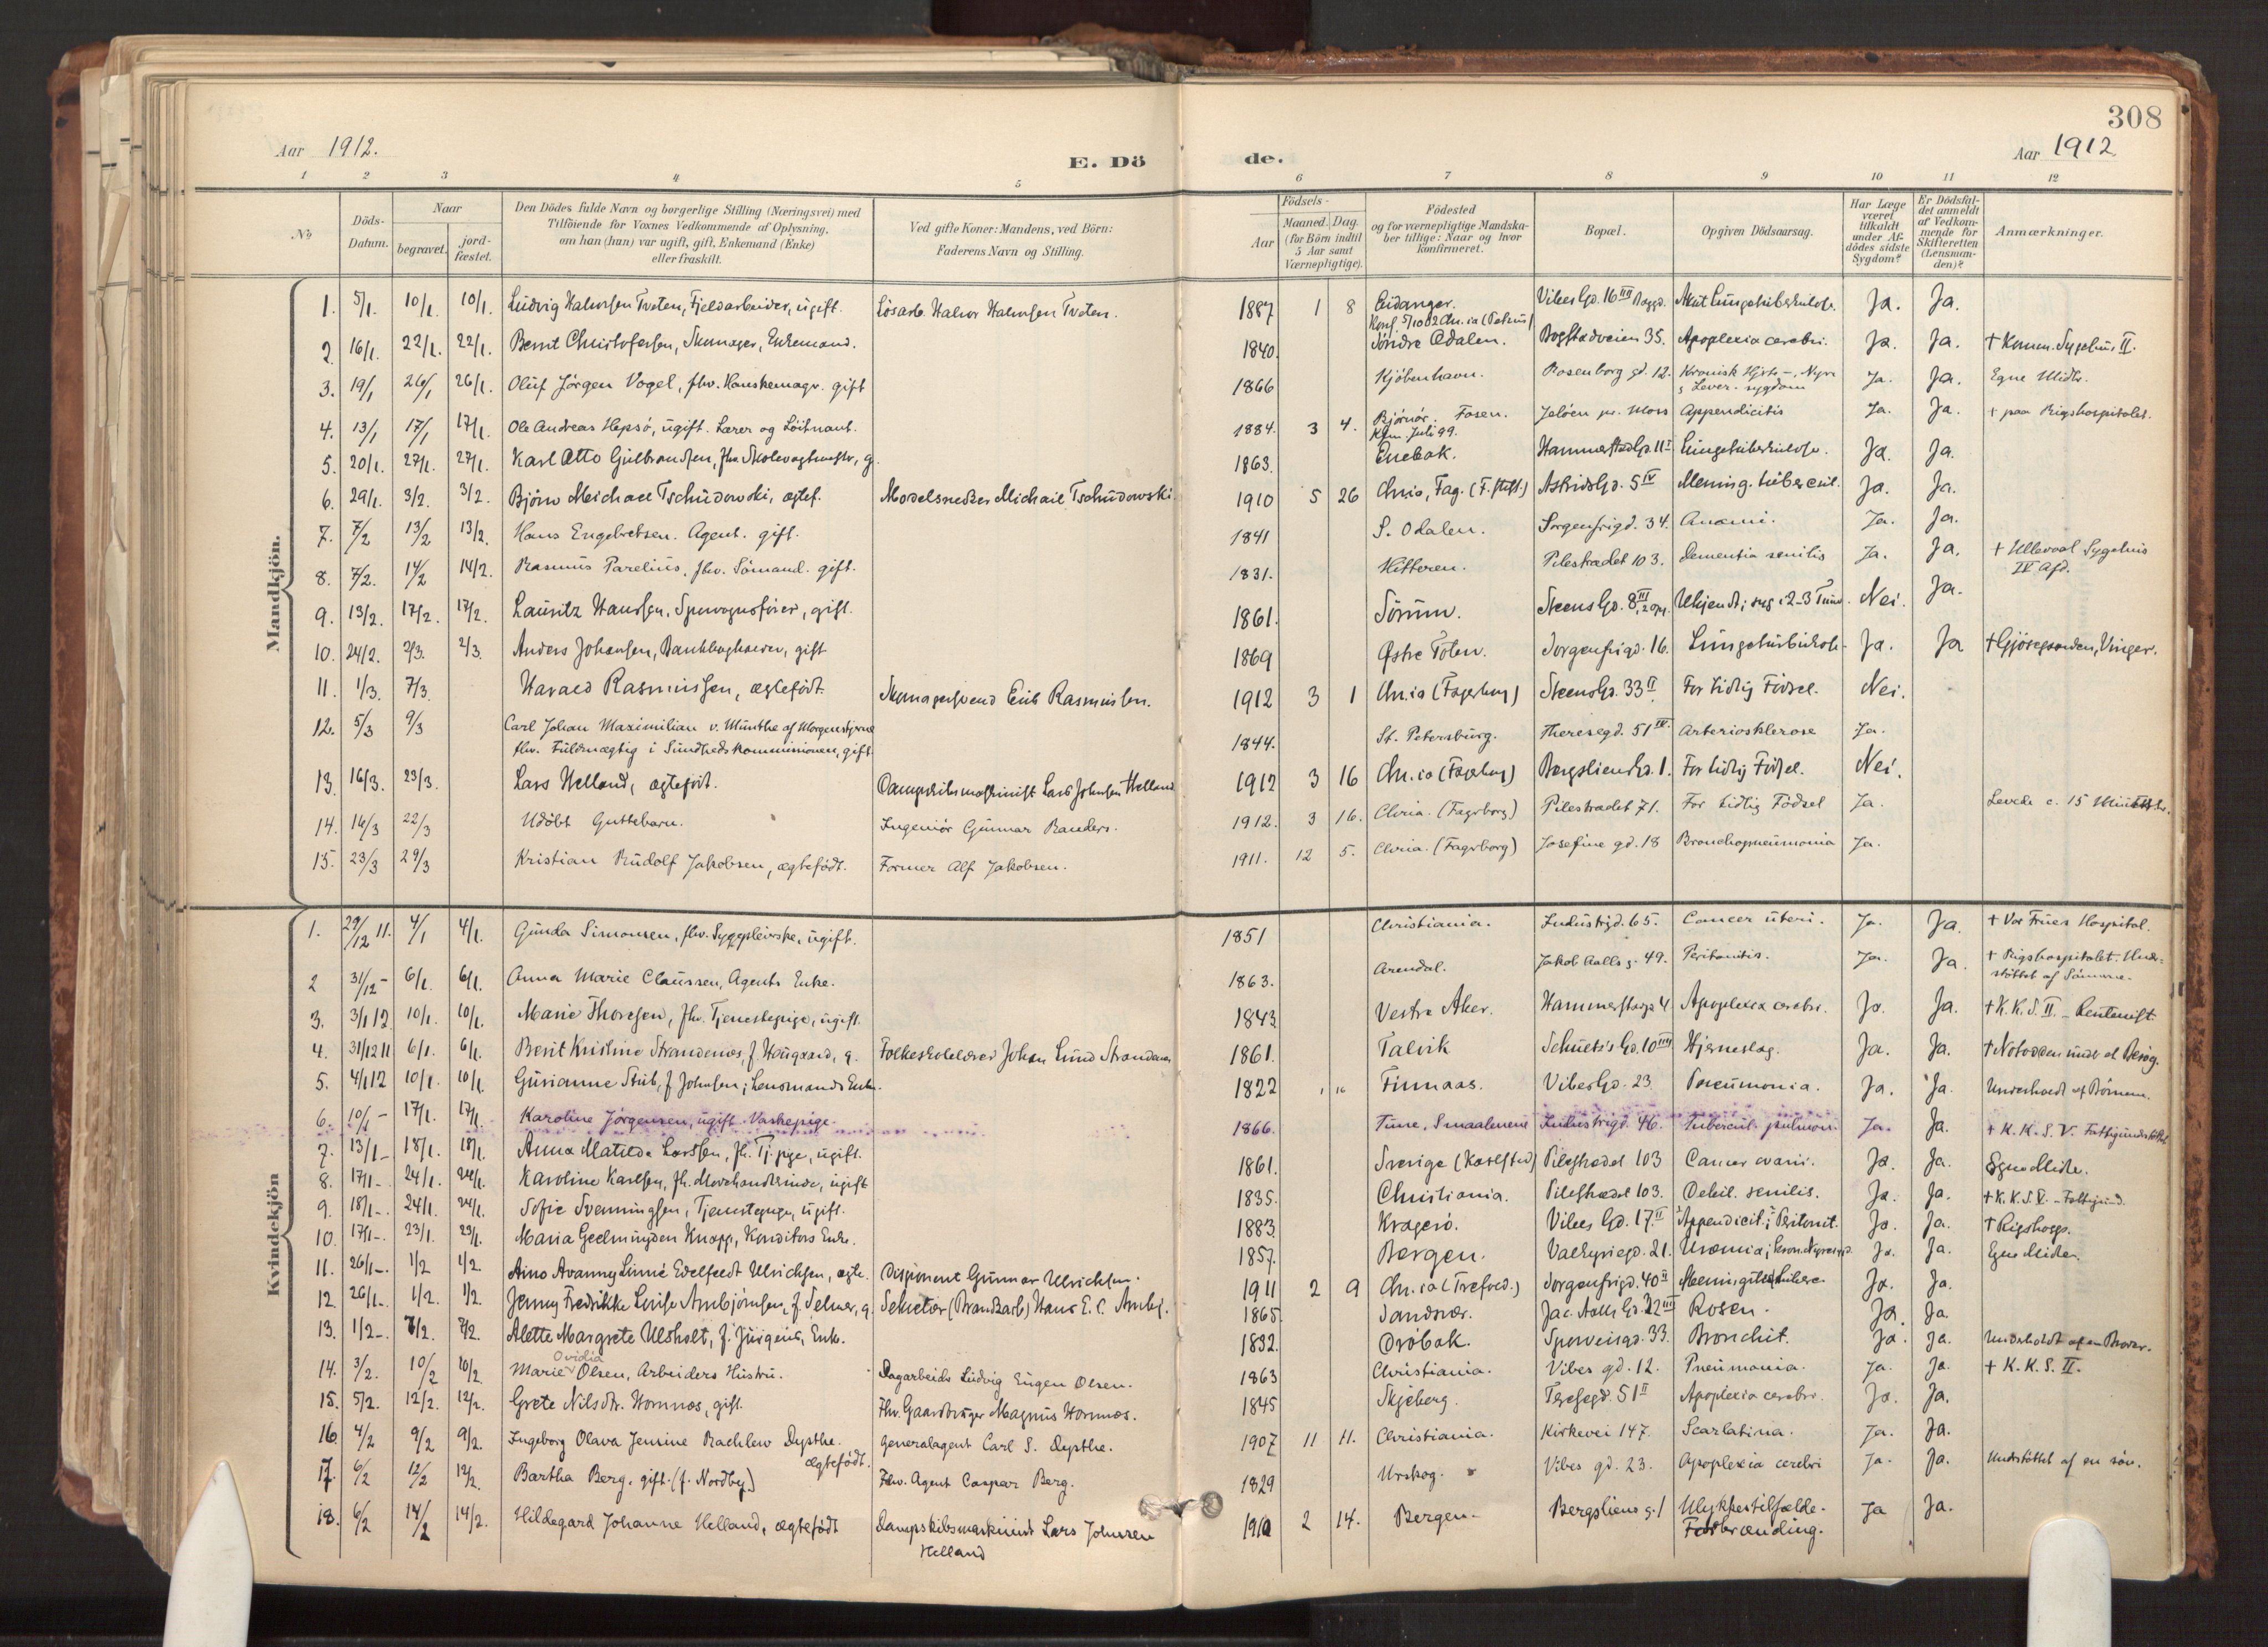 308
Aar 1912.
E. Dö de.
Aar 1912
1 2 3 4 5 6 7 8 9 10 11 12
No
Döds-Datum.
Naar begravet. jord-fæstet.
Den Dödes fulde Navn og borgerlige Stilling (Næringsvei) med
Tilföiende for Voxnes Vedkommende af Oplysning,
om han (hun) var ugift, gift, Enkemand (Enke)
eller fraskilt.
Ved gifte Koner: Mandens, ved Börn:
Faderens Navn og Stilling.
Födsels-
Aar Maaned. Dag.
(for Börn indtil
5 Aar samt
Værnepligtige).
Födested
og for værnepligtige Mandska-
ber tillige: Naar og hvor
konfirmeret.
Bopæl.
Opgiven Dödsaarsag.
Har Læge
været
tilkaldt
under Af-
dödes sidste
Sygdom?
Er Dödsfal-
det anmeldt
af Vedkom-
mende for
Skifteretten
(Lensman-
den)?
Anmærkninger.
Mandkjön.
1. 5/1. 10/1. 10/1. Ludvig Halvorsen Tveten, Fjeldarbeider, ugift. Lösarb. Halvor Halvorsen Tveten. 1887 1 8 Eidanger. Vibes Gd. 16 III Akut Lungetuberkulose. Ja. Ja.
2. 16/1. 22/1. 22/1. Bernt Christofersen, Skomager, Enkemand. 1840. Söndre Odalen. Bogstadveien 35. Apoplexia cerebri. Ja. Ja. † Komm. Sygehus II.
3. 19/1 26/1 26/1. Oluf Jörgen Vogel, fhv. Hanskemagr. gift 1866 Kjöbenhavn. Rosenborg gd. 12. Kronisk Hjerte-, Nyre
& Lever-sygdom Ja. Ja. Egne Midler.
4. 13/1 17/1 17/1. Ole Andreas Hepsö, ugift. Lærer og Löitnant. 1884. 3 4. Björnör. Fosen.
Kfm. Juli 99. Jelöen pr. Moss Appendicitis Ja. Ja. † paa Rigshospitalet.
5. 20/1. 27/1. 27/1. Karl Otto Gulbrandsen, fhv. Skolevagtmester, g. 1863. Enebak. Hammerstads Gd. 11 I Lungetuberkulose. Ja. Ja.
6. 29/1. 3/2. 3/2. Björn Michael Tschudowski, ægtef. Modelsnedker Michail Tschudowski 1910 5 26 Chria, Fag. Astrids Gd. 5 IV Mening. tubercul. Ja. Ja.
7. 7/2 13/2 13/2. Hans Engebretsen. Agent. gift. 1841 S. Odalen. Sorgenfrigd. 34. Anæmi. Ja. Ja.
8. 7/2. 14/2 14/2. Rasmus Parelius, fhv. Sömand. gift. 1831. Hitteren. Pilestrædet 103. Dementia senilis Ja. Ja. † Ullevaal Sygehus
IV Afd.
9. 13/2. 17/2. 17/2. Lauritz Hansen, Sporvognsförer, gift. 1861. Sörum. Steens Gd. 8 III Ukjendt; syg i 2-3 Timer. Nei. Ja.
10. 24/2. 2/3. 2/3. Anders Johansen, gift 1869 Østre Toten. Sorgenfrigd. 16. Lungetuberkulose. Ja. Ja † Gjösegaarden, Vinger.
11. 1/3. 7/3. Harald Rasmussen, ægtefödt. Skomagersvend Erik Rasmussen. 1912 3 1 Chr.ia (Fagerborg) Steens Gd. 33 II For tidlig Födsel. Nei.
12. 5/3 9/3 Carl Johan Maximilian v. Munthe af Morgenstjerne
fhv. Fuldmægtig i Sundhedskommisionen, gift 1844. St. Petersburg. Theresegd. 51 IV. Arteriosklerose Ja.
13. 16/3. 23/3. Lars Helland, ægtefödt. Dampskibsmaskinist Lars Johnsen Helland 1912 3 16 Chr.ia (Fagerborg) Bergsliens Gd. 1. For tidlig Födsel. Nei.
14. 16/3 22/3 Udöbt Guttebarn. Ingeniör Gunnar Randers. 1912. 3 16. Chria. (Fagerborg) Pilestrædet 71. For tidlig Födsel Ja. Levede c. 15 Minutter.
15. 23/3 29/3 Kristian Rudolf Jakobsen, ægtefödt. Former Alf Jakobsen. 1911. 12 5. Chria. (Fagerborg) Josefine gd. 18 Bronchopneumonia Ja.
Kvindekjön
1. 29/12 11. 4/1 4/1. Gunda Simonsen, fhv. Sygepleierske, ugift. 1851 Christiania. Industrigd. 65. Cancer uteri. Ja. Ja. † Vor Frues Hospital.
2 31/12 - 6/1. 6/1. Anna Marie Claussen, Agents Enke. 1863. Arendal. Jakob Aalls g. 49. Peritonitis. Ja. Ja. † Rigshospitalet. Under-
stöttet af Sönnerne.
3. 3/1 12. 10/1. 10/1. Marie Thoresen, fhv. Tjenestepige, ugift. 1843 Vestre Aker. Hammerstads g. 4 Apoplexia cerebri. Ja. Ja. † K. K. S. II. - Rentenist.
4. 31/12 11 6/1. 6/1. Berit Kristine Strandenæs, f. Hougaard, g. Folkeskolelærer Johan Lund Strandenæs 1861. Talvik Schuetz's Gd. 10 III Hjerneslag. Ja. Ja. † Notodden under et Besög.
5. 4/1 12 10/1. 10/1. Gurianne Stub, f. Johnsen, Lensmands Enke. 1822 Finnaas. Vibes Gd. 23 Pneumonia. Ja. Ja. Underholdt af Börnene.
6. 10/1 - 17/1. 17/1. Karoline Jörgensen, ugift. Vaskepige. 1866. Tune, Smaalenene Industrigd. 46. Tubercul. pulmon. Ja. Ja. † K. K. S. V. Fattigunderstöttet
7. 13/1 - 18/1. 18/1. Anna Matilde Larssen, fh. Tj. pige, ugift. 1861. Sverige (Karlstad) Pilestrædet 103 Cancer ovarii. Ja. Ja. Egne Midler.
8. 17/1 - 24/1. 24/1. Karoline Karlsen, fh. Movehandlerinde, ugift 1835. Christiania. Pilestrædet 103. Debil. senilis. Ja. Ja. † K. K. S. V. - Fattigund.
9. 18/1 -. 24/1. 24/1. Sofie Svenningsen, Tjenestepige, ugift. 1883. Kragerö. Vibes Gd. 17 II Appendicit.; Peritonit. Ja. Ja. † Rigshosp.
10. 17/1 -. 23/1. 23/1. Maria Geelmuyden Knapp, Konditors Enke. 1857. Bergen. Valkyriegd. 21. Uræmia; kron. Nyresygd. Ja. Ja. Egne Midler.
11. 26/1 -. 1/2 1/2. Aino Linné Edelfeldt Ulrichsen, ægte. Disponent Gunnar Ulrichsen. 1911 2 9 Chr.ia (Trefold.) Sorgenfrigd. 40 II Meningitis tuberc. Ja. Ja.
12. 26/1 -. 1/2. 1/2. Jenny Fredrikke Louise Arnbjörnsen, f. Selmer, g. Sekretær Hans E. C. Arnbj. 1865. Sandsvær. Jac. Aalls Gd. 22 III Rosen. Ja. Ja.
13. 1/2 -. 7/2. 7/2. Alette Margrete Ulsholt, f. Jürgens, Enke. 1832. Dröbak. Sporveisgd. 33. Bronchit. Ja. Ja. Underholdt af en Broder.
14. 3/2. 10/2 10/2. Marie Ovidia Olsen, Arbeiders Hustru. Dagarbeider Ludvig Eugen Olsen. 1863 Christiania. Vibes gd. 12. Pneumonia. Ja. Ja. † K. K. S. II.
15. 5/2. 12/2. 12/2. Grete Nilsdtr. Hornnes, gift. Fhv. Gaardbruger Magnus Hornnes. 1845 Skjeberg. Teresegd. 51 II Apoplexia cerebri. Ja. Ja.
16. 4/2 9/2 9/2. Ingeborg Olava Jensine Rachlew Dysthe.
ægtefödt. Generalagent Carl S. Dysthe. 1907 11 11. Christiania. Kirkevei 147. Scarlatina. Ja. Ja.
17. 6/2 12/2 12/2. Bartha Berg. gift. (f. Nordby) Fhv. Agent Caspar Berg. 1829 Urskog. Vibes gd. 23. Apoplexia cerebri Ja. Ja. Understöttet af en sön.
18. 6/2 14/2 14/2. Hildegard Johanne Helland, ægtefödt Dampskibsmaskinist Lars Johnsen
Helland 1910 2 14. Bergen. Bergsliens g. 1 Ulykkestilfælde.
Forbrænding. Ja Ja.